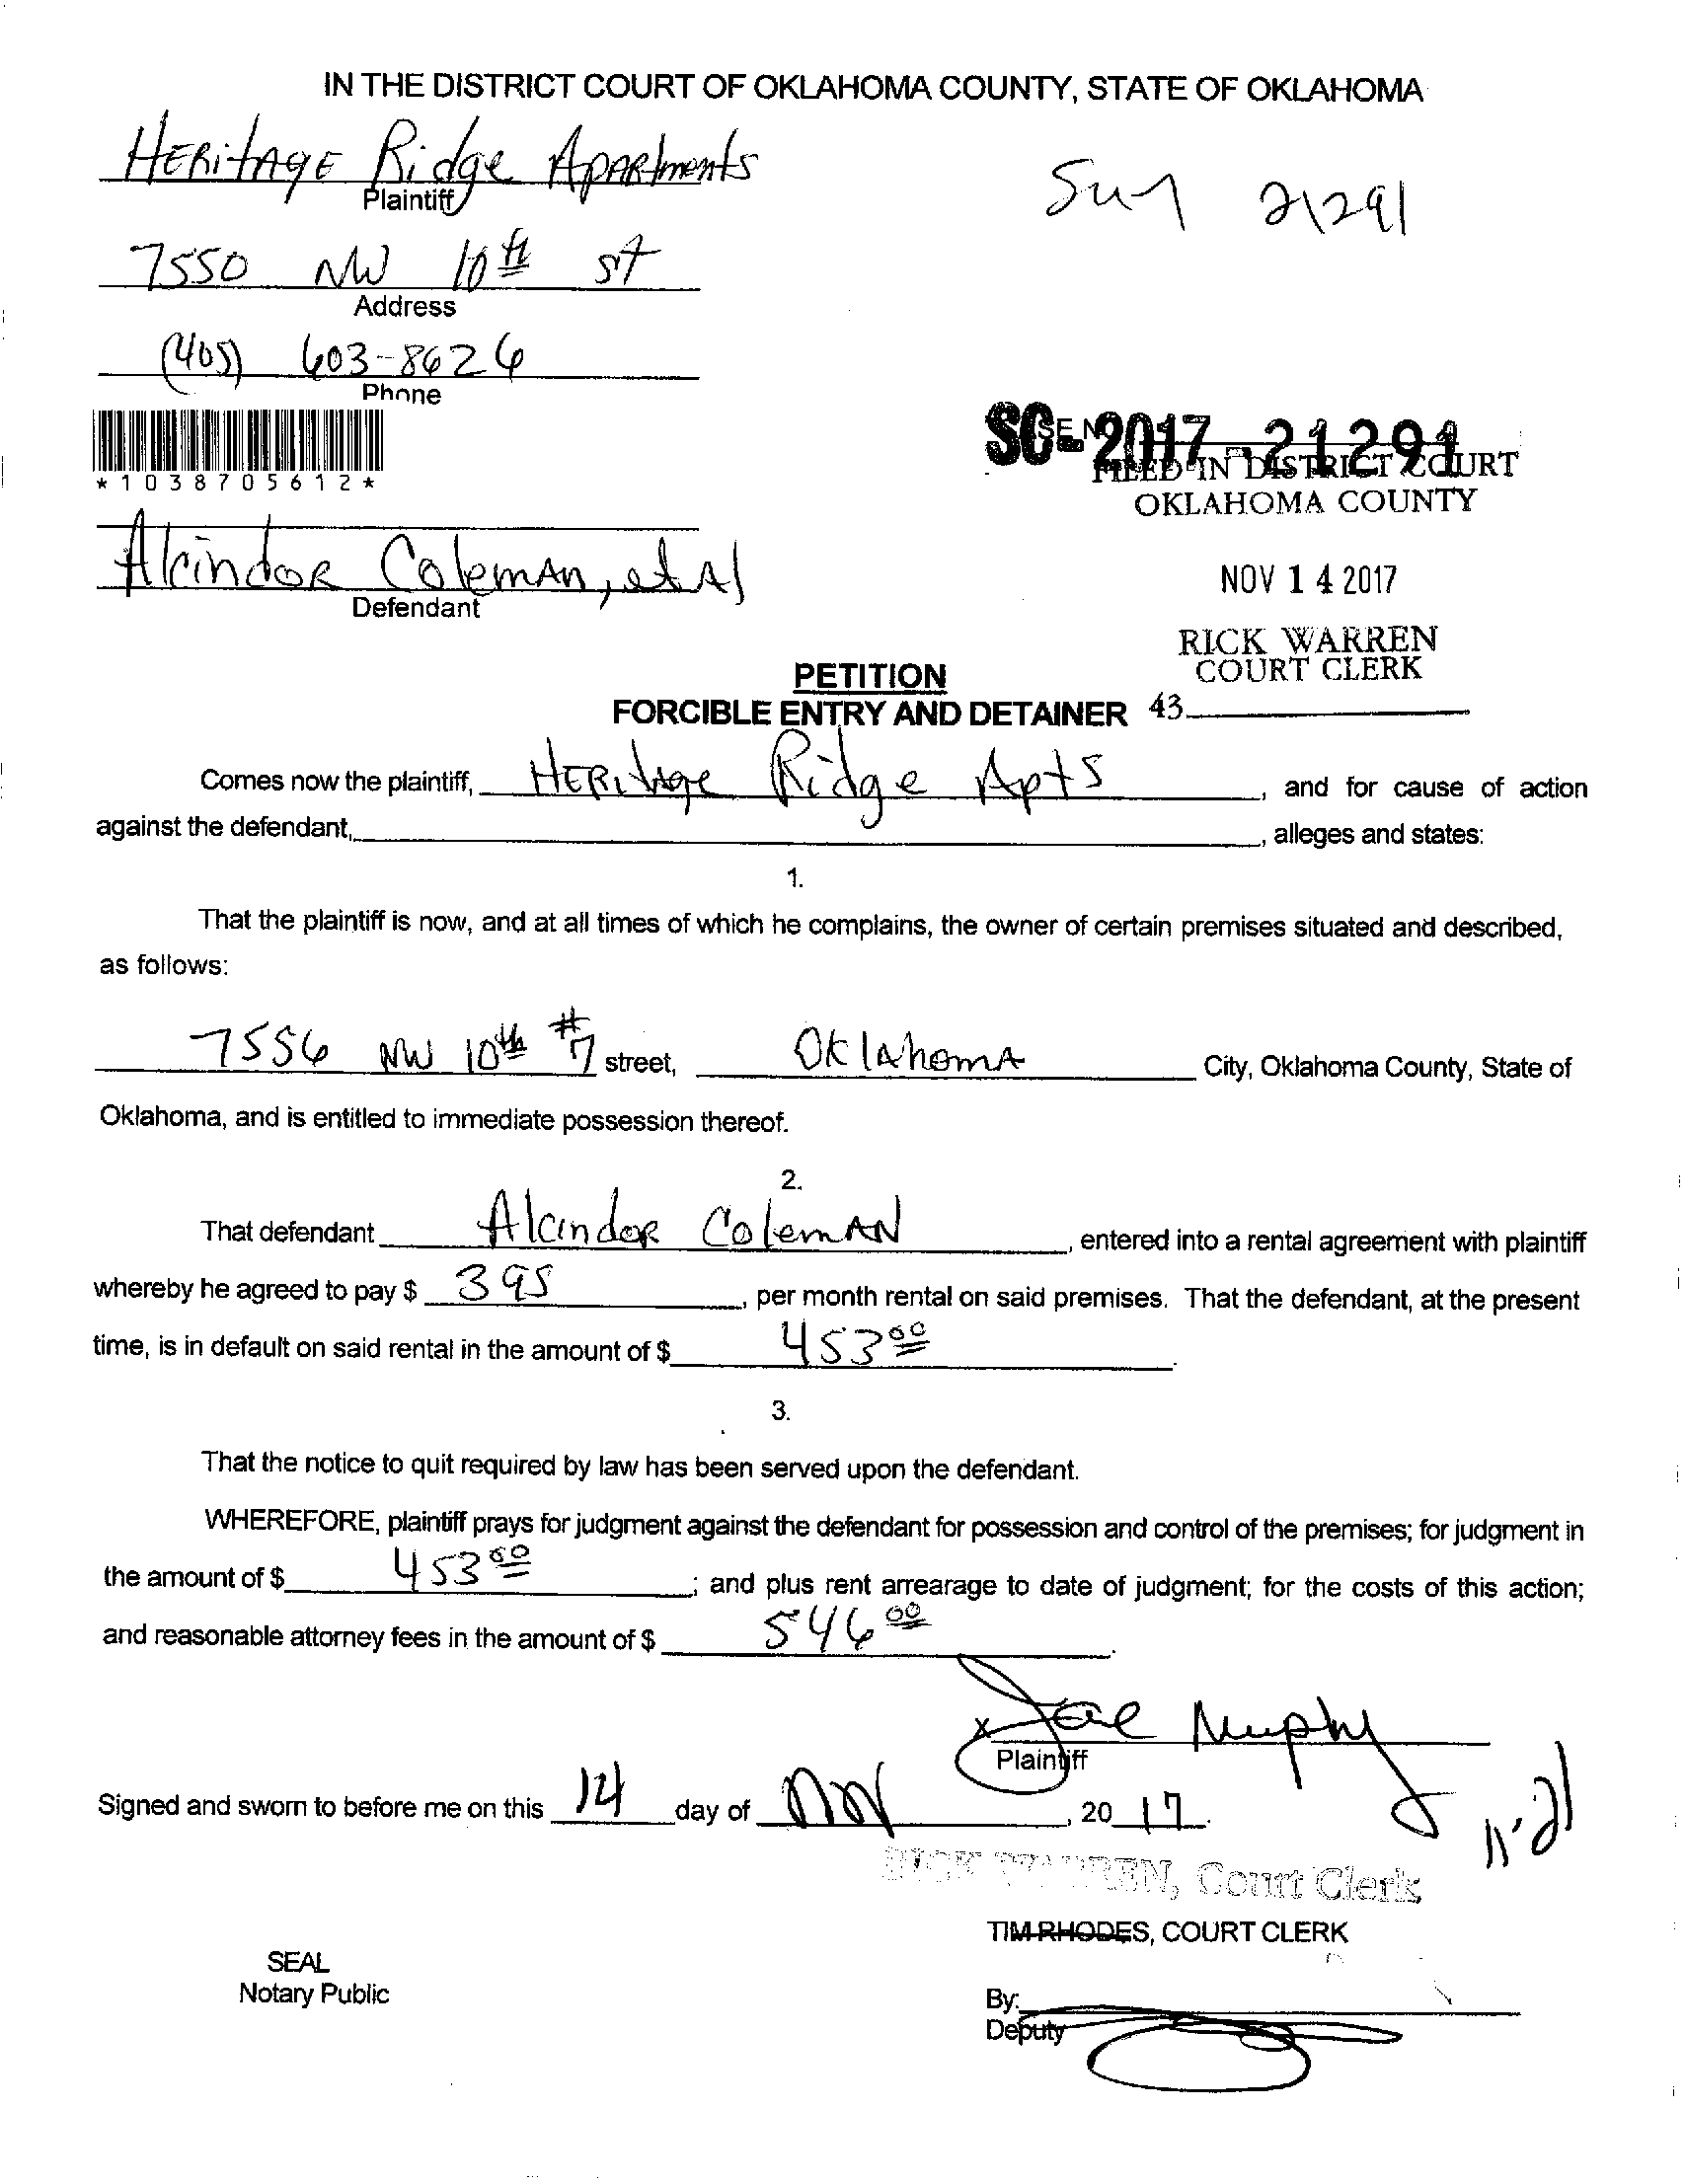 IN THE DISTRICT COURT OF OKLAHOMA COUNTY, STATE OF OKLAHOMA
HERitAgE Ridge Apartments
Plaintiff
21291
7550 NW 10th st
Address
(405) 603-8626
Phone
*1038705612*
SC-2017-21291
FILED IN DISTRICT COURT
OKLAHOMA COUNTY
Alcindor Coleman, et Al
Defendant
NOV 14 2017
RICK WARREN
COURT CLERK
PETITION
FORCIBLE ENTRY AND DETAINER 43
Comes now the plaintiff, HERitage Ridge Apts, and for cause of action
against the defendant, , alleges and states:
1.
That the plaintiff is now, and at all times of which he complains, the owner of certain premises situated and described,
as follows:
7556 NW 10th #7 street, OklAhomA City, Oklahoma County, State of
Oklahoma, and is entitled to immediate possession thereof.
2.
That defendant Alcindor ColemAN, entered into a rental agreement with plaintiff
whereby he agreed to pay $ 395, per month rental on said premises. That the defendant, at the present
time, is in default on said rental in the amount of $ 453 00.
3.
That the notice to quit required by law has been served upon the defendant.
WHEREFORE, plaintiff prays for judgment against the defendant for possession and control of the premises; for judgment in
the amount of $ 453 00; and plus rent arrearage to date of judgment; for the costs of this action;
and reasonable attorney fees in the amount of $ 546 00.
x Joe Murphy
Plaintiff
Signed and sworn to before me on this 14 day of Nov, 2017.
11-21
RICK WARREN, Court Clerk
TIM RHODES, COURT CLERK
SEAL
Notary Public
By:
Deputy